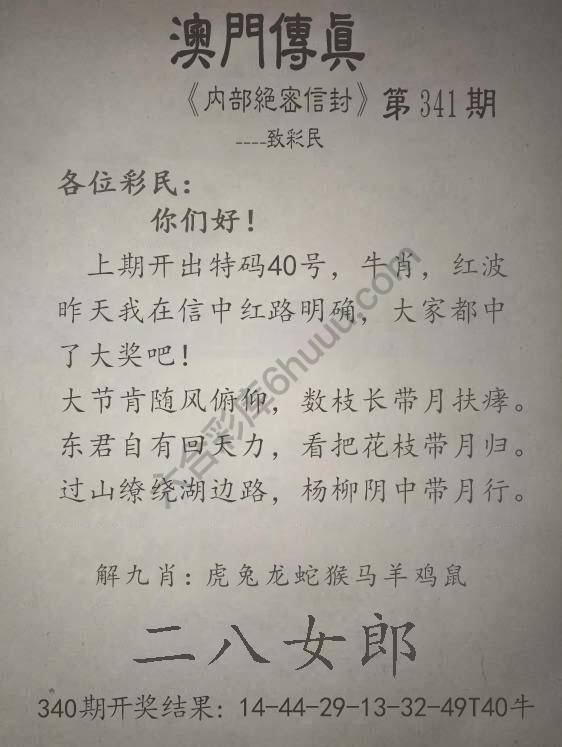 澳門傳眞
《内部絕密信封》第341期
----致彩民
各位彩民：
你们好！
上期开出特码40号，牛肖，红波
昨天我在信中红路明确，大家都中
了大奖吧！
大节肯随风俯仰，数枝长带月扶瘆。
东君自有回天力，看把花枝带月归。
过山缭绕湖边路，杨柳阴中带月行。
六合彩库6huuu.com
解九肖：虎兔龙蛇猴马羊鸡鼠
二八女郎
340期开奖结果：14-44-29-13-32-49T40牛